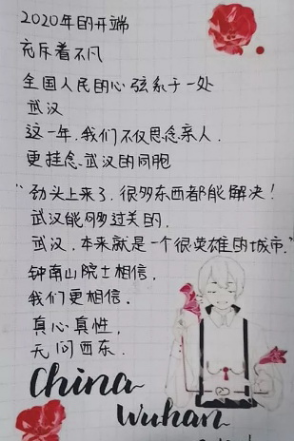 2020年的开端
充斥着不凡
全国人民的心弦系于一处
武汉
这一年.我们不仅思念亲人.
更挂念.武汉的同胞
“劲头上来了.很多东西都能解决!
武汉能够过关的.
武汉.本来就是一个很英雄的城市."
钟南山院士相信.
我们更相信.
真心真性.
无问西东.
China~
Wuhan~